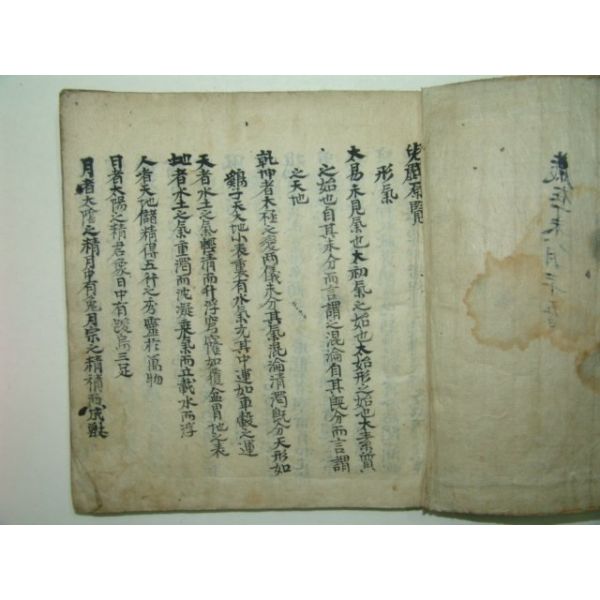 形氣
太易未見氣也太初氣之始也太始形之始也太素質
之始也自其未分而言謂之混淪自其旣分而言謂
之天地
乾坤者太極之変两儀未分其氣混淪清濁旣分天形如
鷄子天大地小表裏有水氣充其中運如車轂之運
天者水土之氣輕清而升浮穹窿如覆盆冒地之表
地者水土之氣重濁而沈凝乘氣而立載水而浮
人者天地儲精得五行之秀靈於萬物
日者太陽之精君象日中有踆烏三足
月者太陰之精月中有兎月宗之精積而成獸